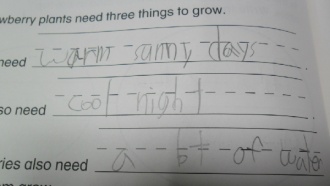 wberry plants need three things to grow.
need warm sanny days
so need coot night
ries also need a bt of wate